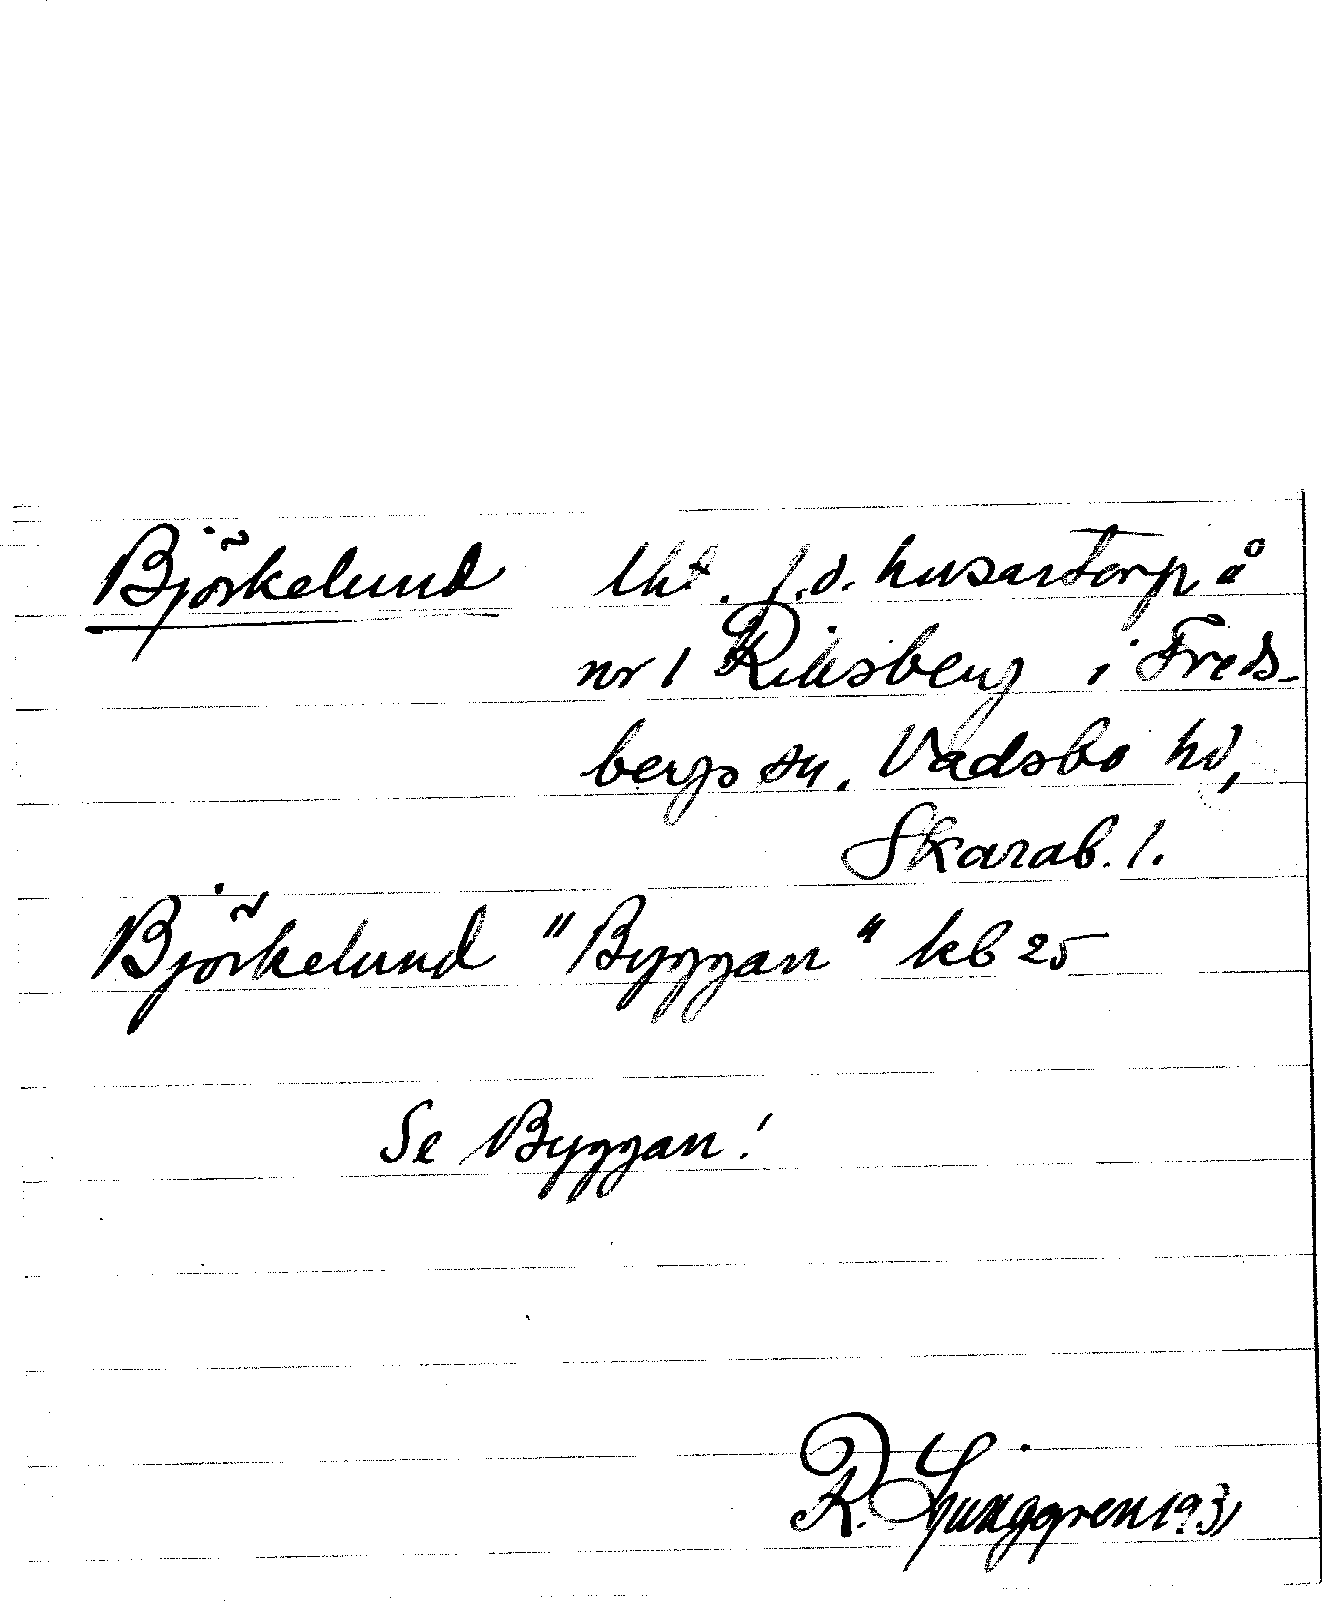 Björkelund lht. f.d. husartorp å
nr 1 Riksberg i Freds-
bergs sn. Vadsbo hd,
Skarab. l.
Björkelund "Byggan" kb 25
Se Byggan!
R. Ljunggren 1931